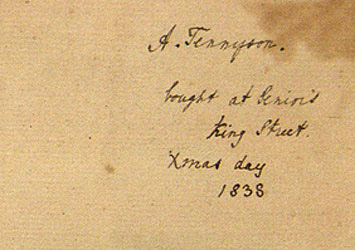 A. Tennyson.
bought at Senior's
King Street.
Xmas day
1838